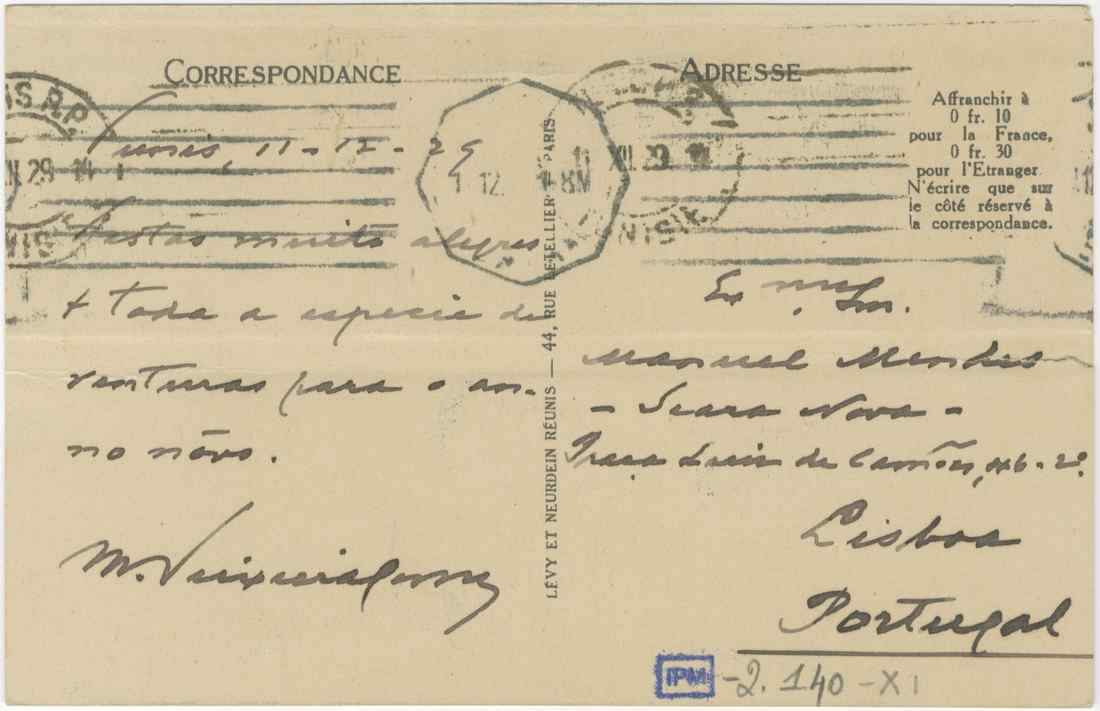 CORRESPONDANCE
Tunis, 11-12-29
Festas muito alegres
+ toda a especie de
venturas para o an-
no nôvo.
M. Teixeira Gomes
LÉVY ET NEURDEIN RÉUNIS — 44, RUE LETELLIER-PARIS
ADRESSE
Affranchir à
0 fr. 10
pour la France,
0 fr. 30
pour l'Etranger
N'écrire que sur
le côté réservé à
la correspondance.
XII 29
Exmo. Snr.
Manuel Mendes
- Seara Nova -
Praça Luis de Camões, 46-2º
Lisboa
Portugal
IPM -2.140-XI